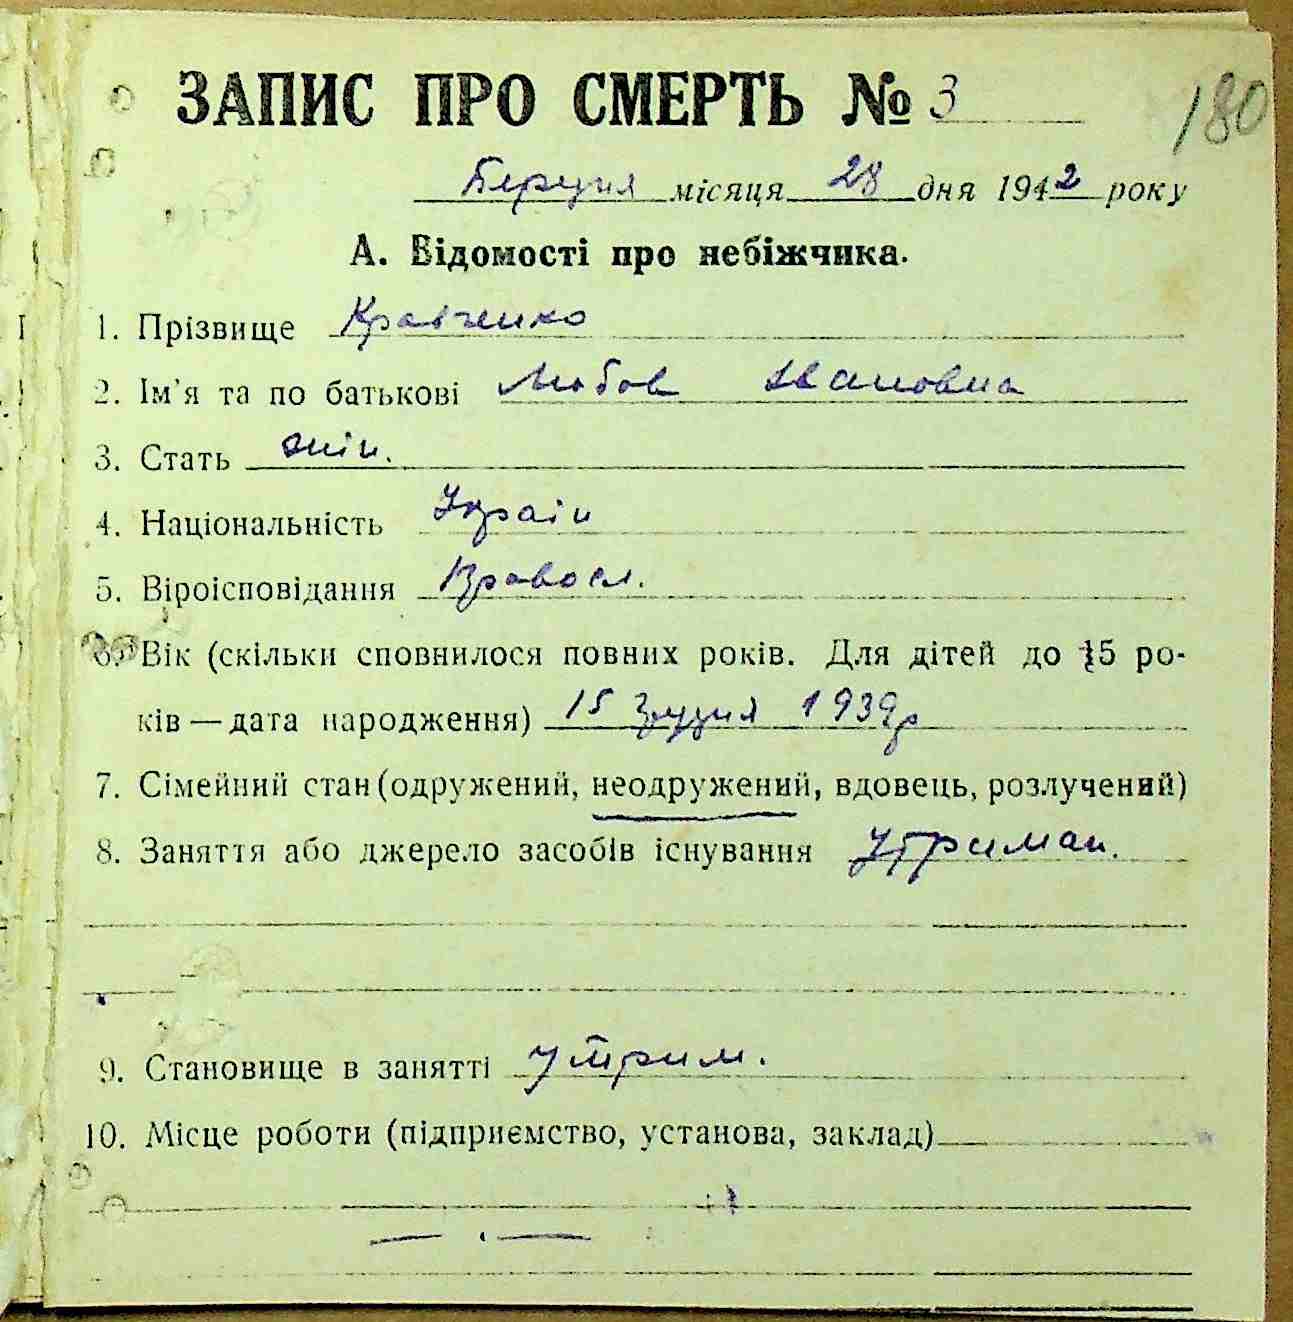 ЗАПИС ПРО СМЕРТЬ № 3
180
Березня місяця 28 дня 1942 року
А. Відомості про небіжчика.
1. Прізвище Кравченко
2. Ім'я та по батькові Любов Івановна
3. Стать жін.
4. Національність Україн
5. Віроісповідання Правосл.
6. Вік (скільки сповнилося повних років. Для дітей до 15 ро-
ків — дата народження) 15 Грудня 1939р
7. Сімейний стан (одружений, неодружений, вдовець, розлучений)
8. Заняття або джерело засобів існування Утриман.
9. Становище в занятті Утрим.
10. Місце роботи (підприємство, установа, заклад)